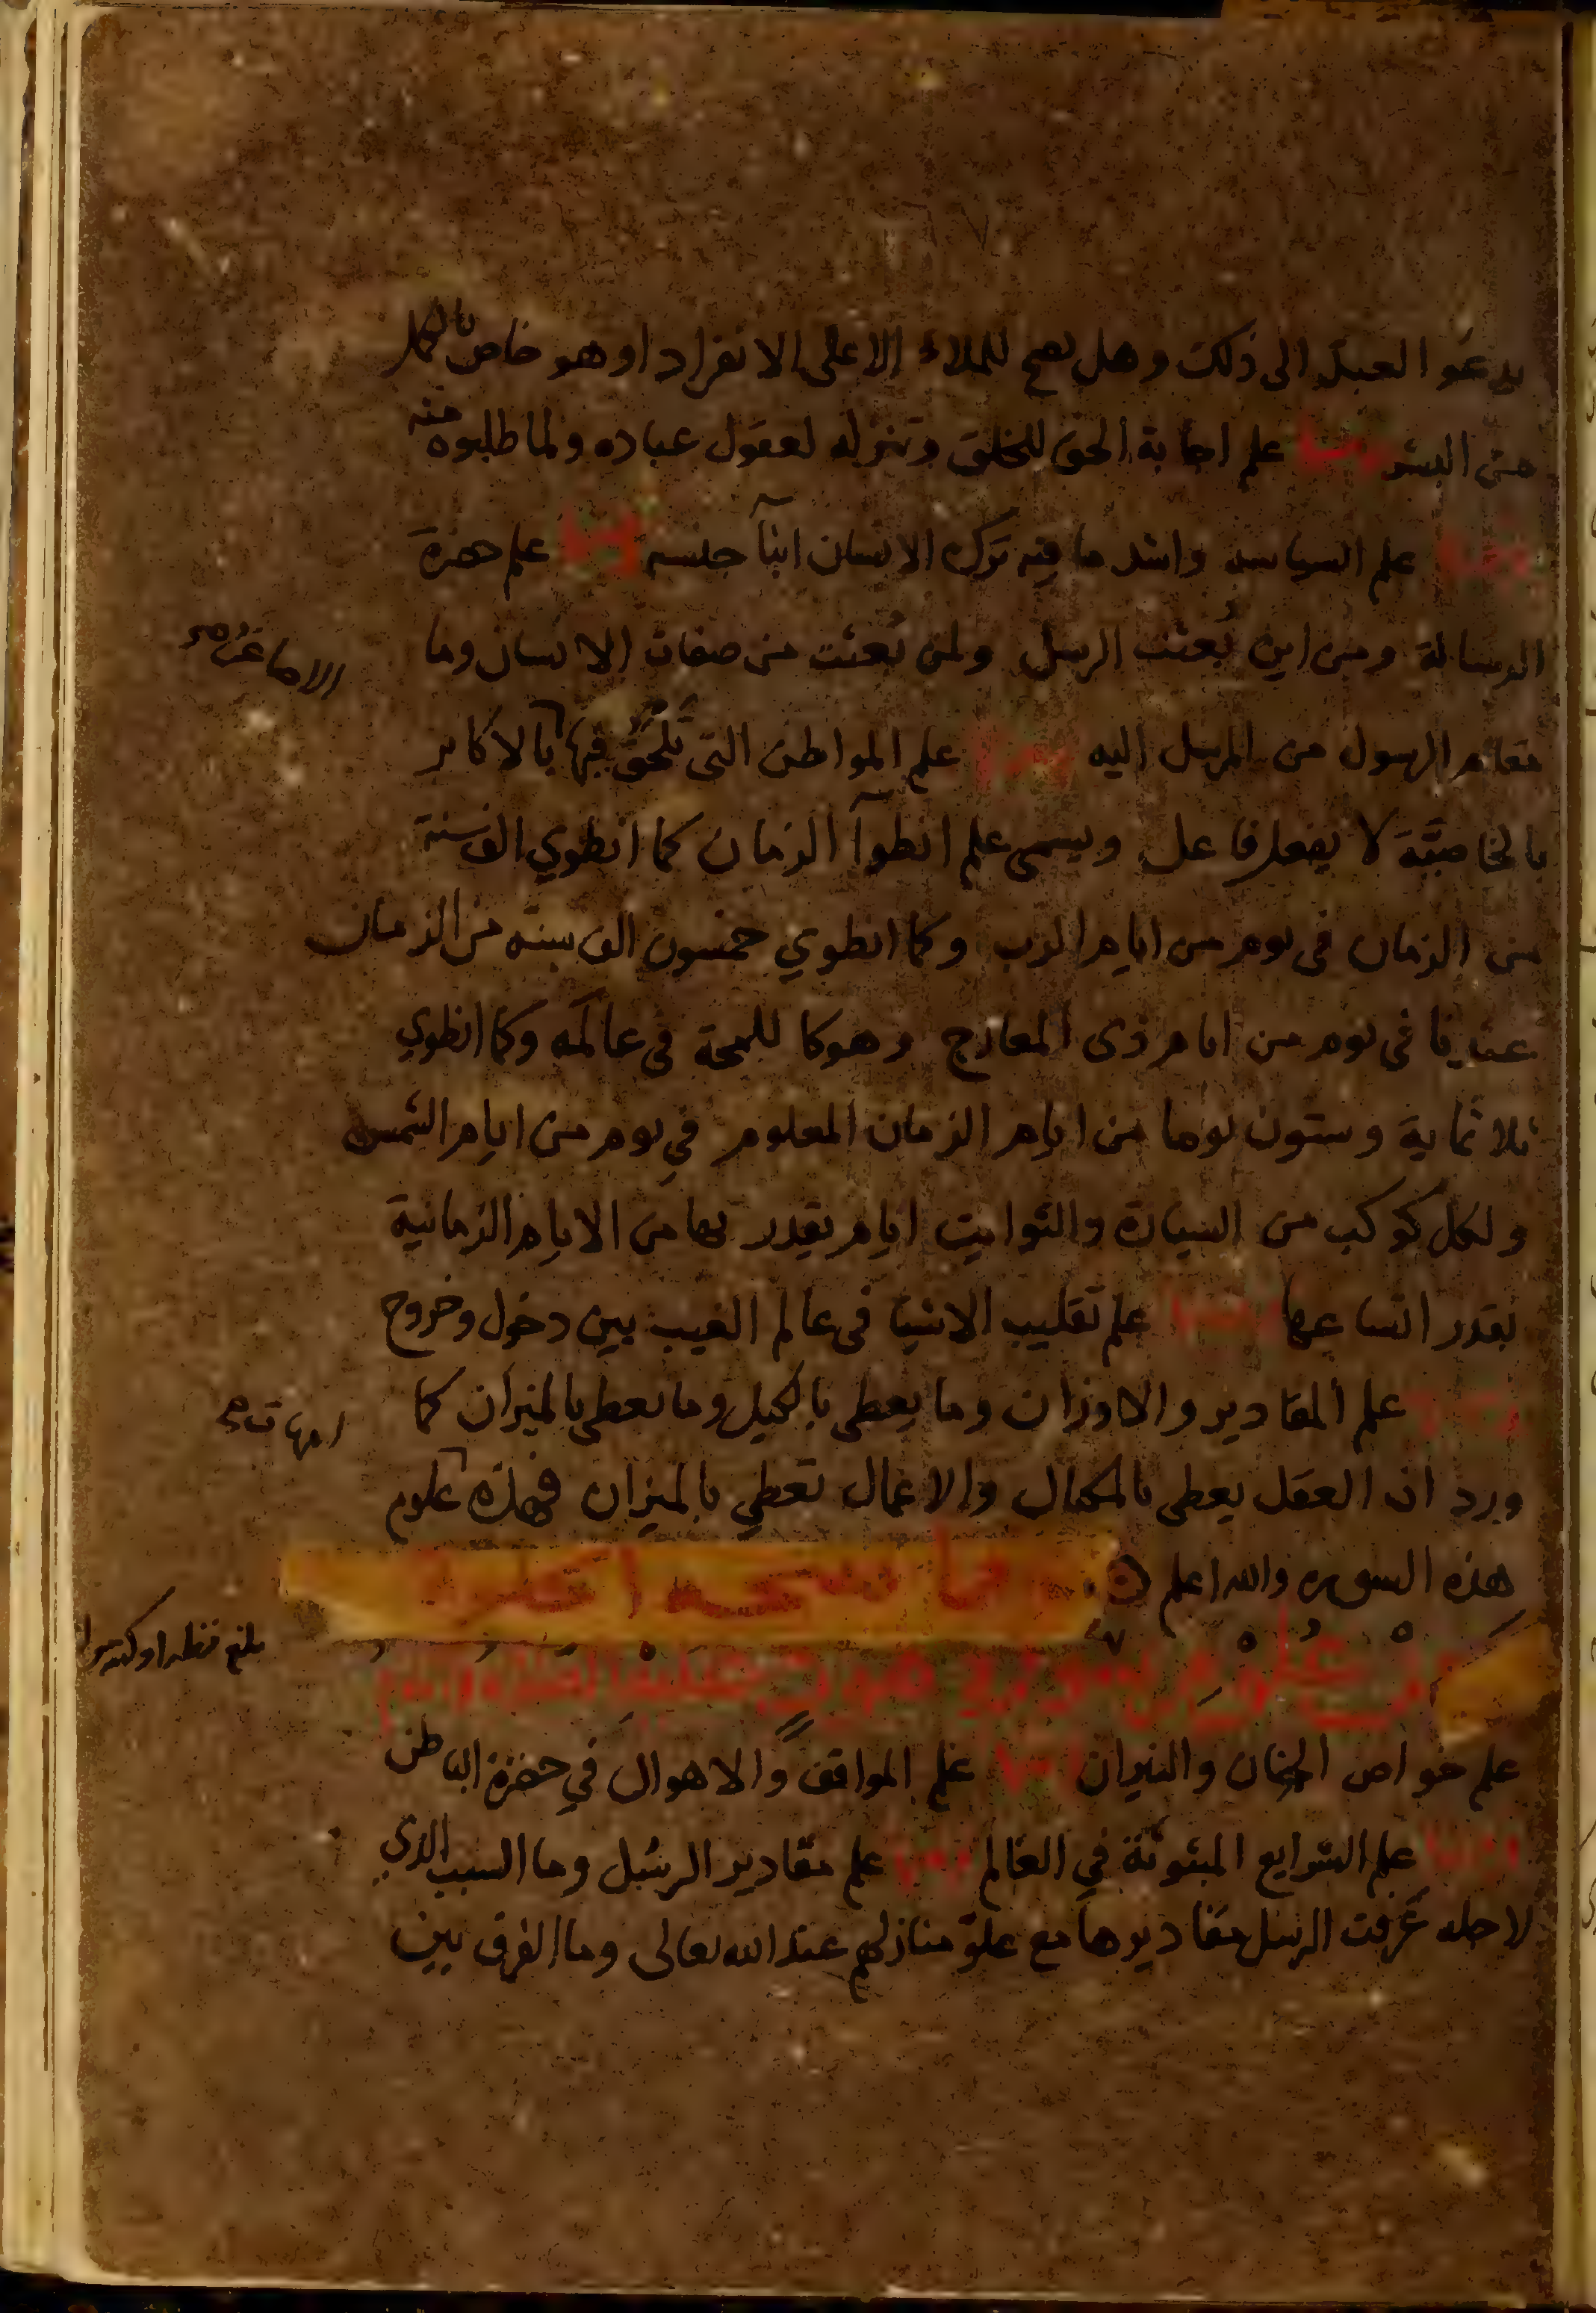 يدعو العبد الى ذلك وهل يصح للملاء الاعلى الانفراد او هو خاص بالكمل
من البشر ومنها علم اجابة الحق للخلق وتنزله لعقول عباده ولما طلبوه منه
ومنها علم السياسه واشد ما فيه ترك الانسان ابنآ جنسه ومنها علم حضرة
الرسالة ومن اين بُعثت الرسل ولمن بُعثت من صفات الانسان وما
مقام الرسول من المرسل اليه ومنها علم المواطن التى تلحق فيها بالاكابر
الاصاغر صح
بالخاصيَّة لا يفعل فاعل ويسمى علم انطوآ الزمان كما انطوي الف سنة
من الزمان فى يوم من ايام الرب وكما انطوي خمسون الف سنه من الزمان
عندنا فى يوم من ايام ذى المعارج وهو كاللمحة فى عالمه وكما انطوي
ثلاثماية وستون يوما من ايام الزمان المعلوم في يوم من ايام الشمس
ولكل كوكب من السيارة والثوابت ايام يقدر لها من الايام الزمانية
بقدر اتساعها ومنها علم تقليب الاشيا فى عالم الغيب بين دخول وخروج
ومنها علم المقادير والاوزان وما يعطى بالكيل وما يعطى بالميزان كما
ورد ان العقل يعطى بالمكيال والاعمال تعطي بالميزان فهذه علوم
امهات صح
هذه السوره والله اعلم
علوم سورة هود عليه الصلاة والسلام
علم خواص الجنان والنيران ومنها علم المواقف والاهوال في حضرة الباطن
ومنها علم الشرايع المبثوثة في العالم ومنها علم مقادير الرسل وما السبب الذي
لاجله عَرفت الرسل مقاديرها مع علوّ منازلهم عند الله تعالى وما الفرق بين